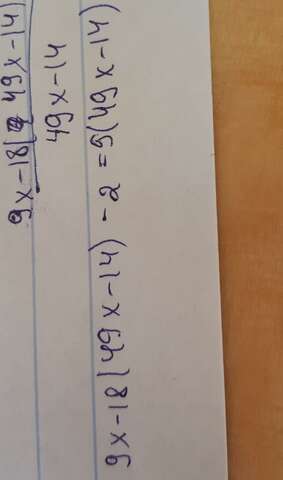 9x-18(49x-14)
49x-14
9x-18(49x-14)-2=9(49x-14)